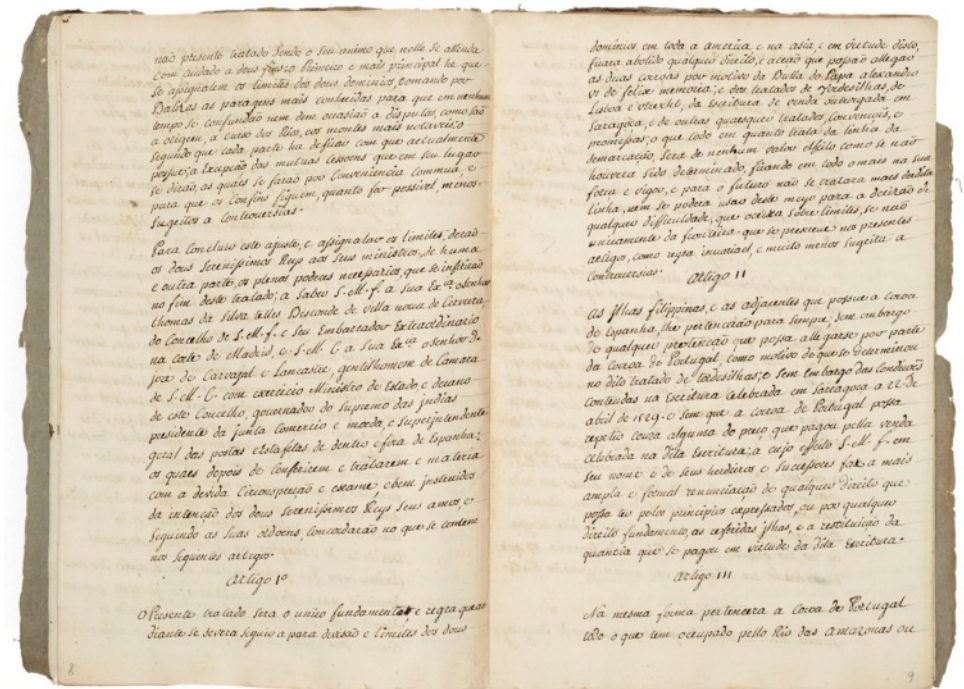 não presente tratado sendo o seu animo que nelle se attenda
com cuidado a dous fins: o Primeiro e mais principal he que
se assignalem os limites dos dous dominios, tomando por
Balizas as paragens mais conhecidas para que em nenhum
tempo se confundão nem dem occasião a disputas, como são
a origem, e curso dos Rios, e os montes mais notaveis; o
segundo que cada parte ha de ficar com que actualmente
possue; a exepção das mutuas Cessoens que em seu lugar
se dirão, as quais se farão por Conveniencia commua, e
para que os Confins fiquem, quanto for possivel, menos
sugeitos a Controversias.
Para Concluir este ajuste, e assignalar os limites, derão
os dous Serenissimos Reys aos seus ministros, de huma
e outra parte, os plenos poderes necessarios, que se insirirão
no fim deste tratado; a Saber S. M. f. a Sua Exca. o senhor
thomas da Silva telles Visconde de villa nova de Cerveira
do Concelho de S. M. f. e Seu Embaixador Extraordinario
na corte de Madrid, e S. M. C. a Sua Exca. o senhor D.
joze de Carvajal e Lancastre, gentilhomem de Camara
de S. M. C. com exercicio Ministro de Estado, e decano
de este Concelho, governador do Supremo das jndias
presidente da junta Comercio e moeda, e Superintendente
geral das postas e estafetas de dentro e fora de Espanha;
os quaes depois de Conferirem e tratarem e materia
com a devida Circonspecção e exame, e bem instruidos
da intenção dos dous Serenissimos Reys Seus amos, e
Seguindo as Suas ordoens, Concordarão no que se contem
nos Seguentes artigos.
Artigo 1º
O Presente tratado Sera o unico fundamento, e regra que ao
diante se devera Seguir a para divisão e limites dos dous
8
dominios em toda a america e na asia, e em virtude disto,
ficara abolido qualquer direito, e acção que possão allegar
as duas coroas por motivo da Bulla do Papa alexandre
VI de felix memoria, e dos tratados de Tordesilhas, de
Lisboa e Utrecht, da Escritura de venda outorgada em
Saragoça, e de outras quaesquer tratados, convenções, e
promessas; o que todo em quanto trata da linha da
demarcação, sera de nenhum valor e ffeito como se não
houvera sido determinado, ficando em todo o mais na sua
força e vigor, e para o futuro não se tratara mais da dita
linha, nem se podera usar deste meyo para a decizão de
qualquer difficuldade, que occorra Sobre limites, se não
unicamente da fronteira que se prescreve nos presentes
artigos, como regra invariavel, e muito menos Sugeita a
Controversias.
Artigo II
As jlhas filippinas, e as adjacentes que possue a Coroa
de Espanha, lhe pertencerão para Sempre, Sem embargo
de qualquer pretenção que possa allegarse por parte
da Coroa de Portugal, como motivo de que se determinou
no dito tratado de tordesilhas, e Sem Embargo das Condições
Contendas na Escritura Celebrada em Sarragoça a 22 de
abril de 1529. e Sem que a Coroa de Portugal possa
repetir couza alguma do preço que pagou pella venda
Celebrada na dita Escritura; a cujo effeito S. M. f. em
Seu nome e de Seus herdeiros e Sucessores faz a mais
ampla e formal renunciação de qualquer direito que
possa ter polos principios expressados, ou por qualquer
direito fundamento, as referidas jlhas, e a restituição da
quantia que se pagou em virtude da dita Escritura.
Artigo III
Na mesma forma pertencera a Coroa de Portugal
todo o que tem occupado pello Rio das Amazonas ou
9